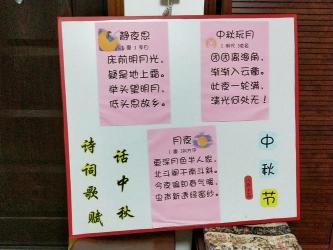 静夜思
唐 李白
床前明月光，
疑是地上霜。
举头望明月，
低头思故乡。
中秋玩月
团团离海角，
渐渐入云衢。
此夜一轮满，
清光何处无！
月夜
更深月色半人家，
北斗阑干南斗斜。
今夜偏知春气暖，
虫声新透绿窗纱。
诗词歌赋
话中秋
中秋节